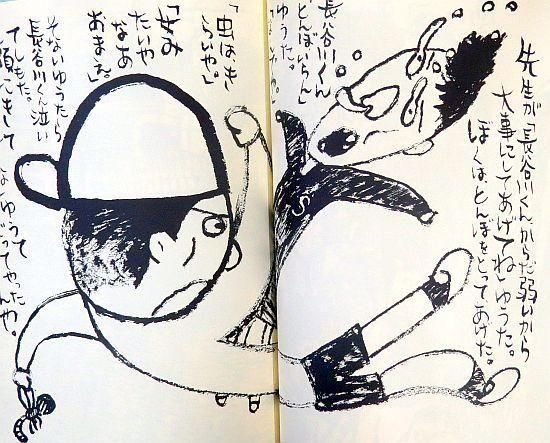 先生が「長谷川くんからだ弱いから
大事にしてあげてね」ゆうた。
ぼくは、とんぼをとってあげた。
長谷川くん
「とんぼいらん」
ゆうた。
「虫はき
らいや。」
「女み
たいや
なあ
おまえ。」
そないゆうたら
長谷川くん泣い
てしもた。